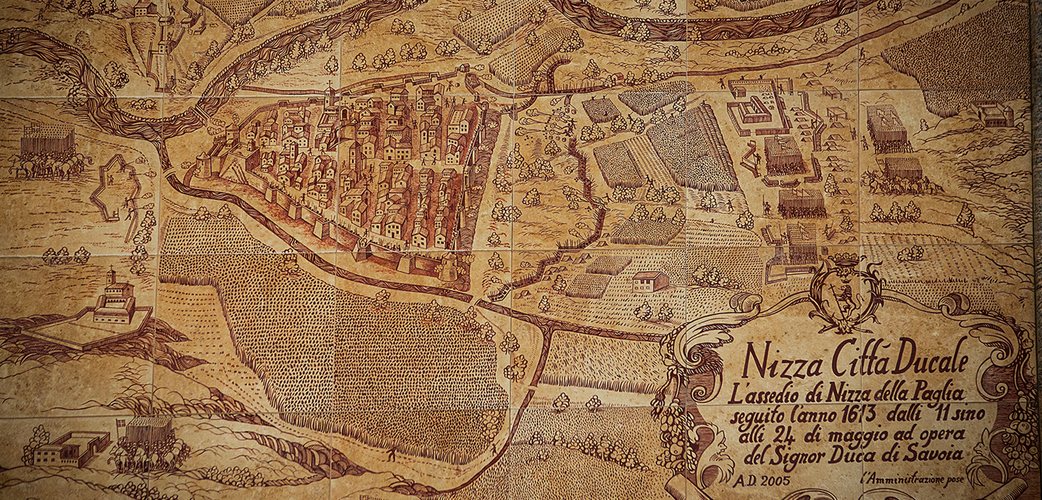 Nizza Città Ducale
L'assedio di Nizza della Paglia
seguito l'anno 1613 dalli 11 sino
alli 24 di maggio ad opera
del Signor Duca di Savoia
A.D. 2005 l'Amministrazione pose